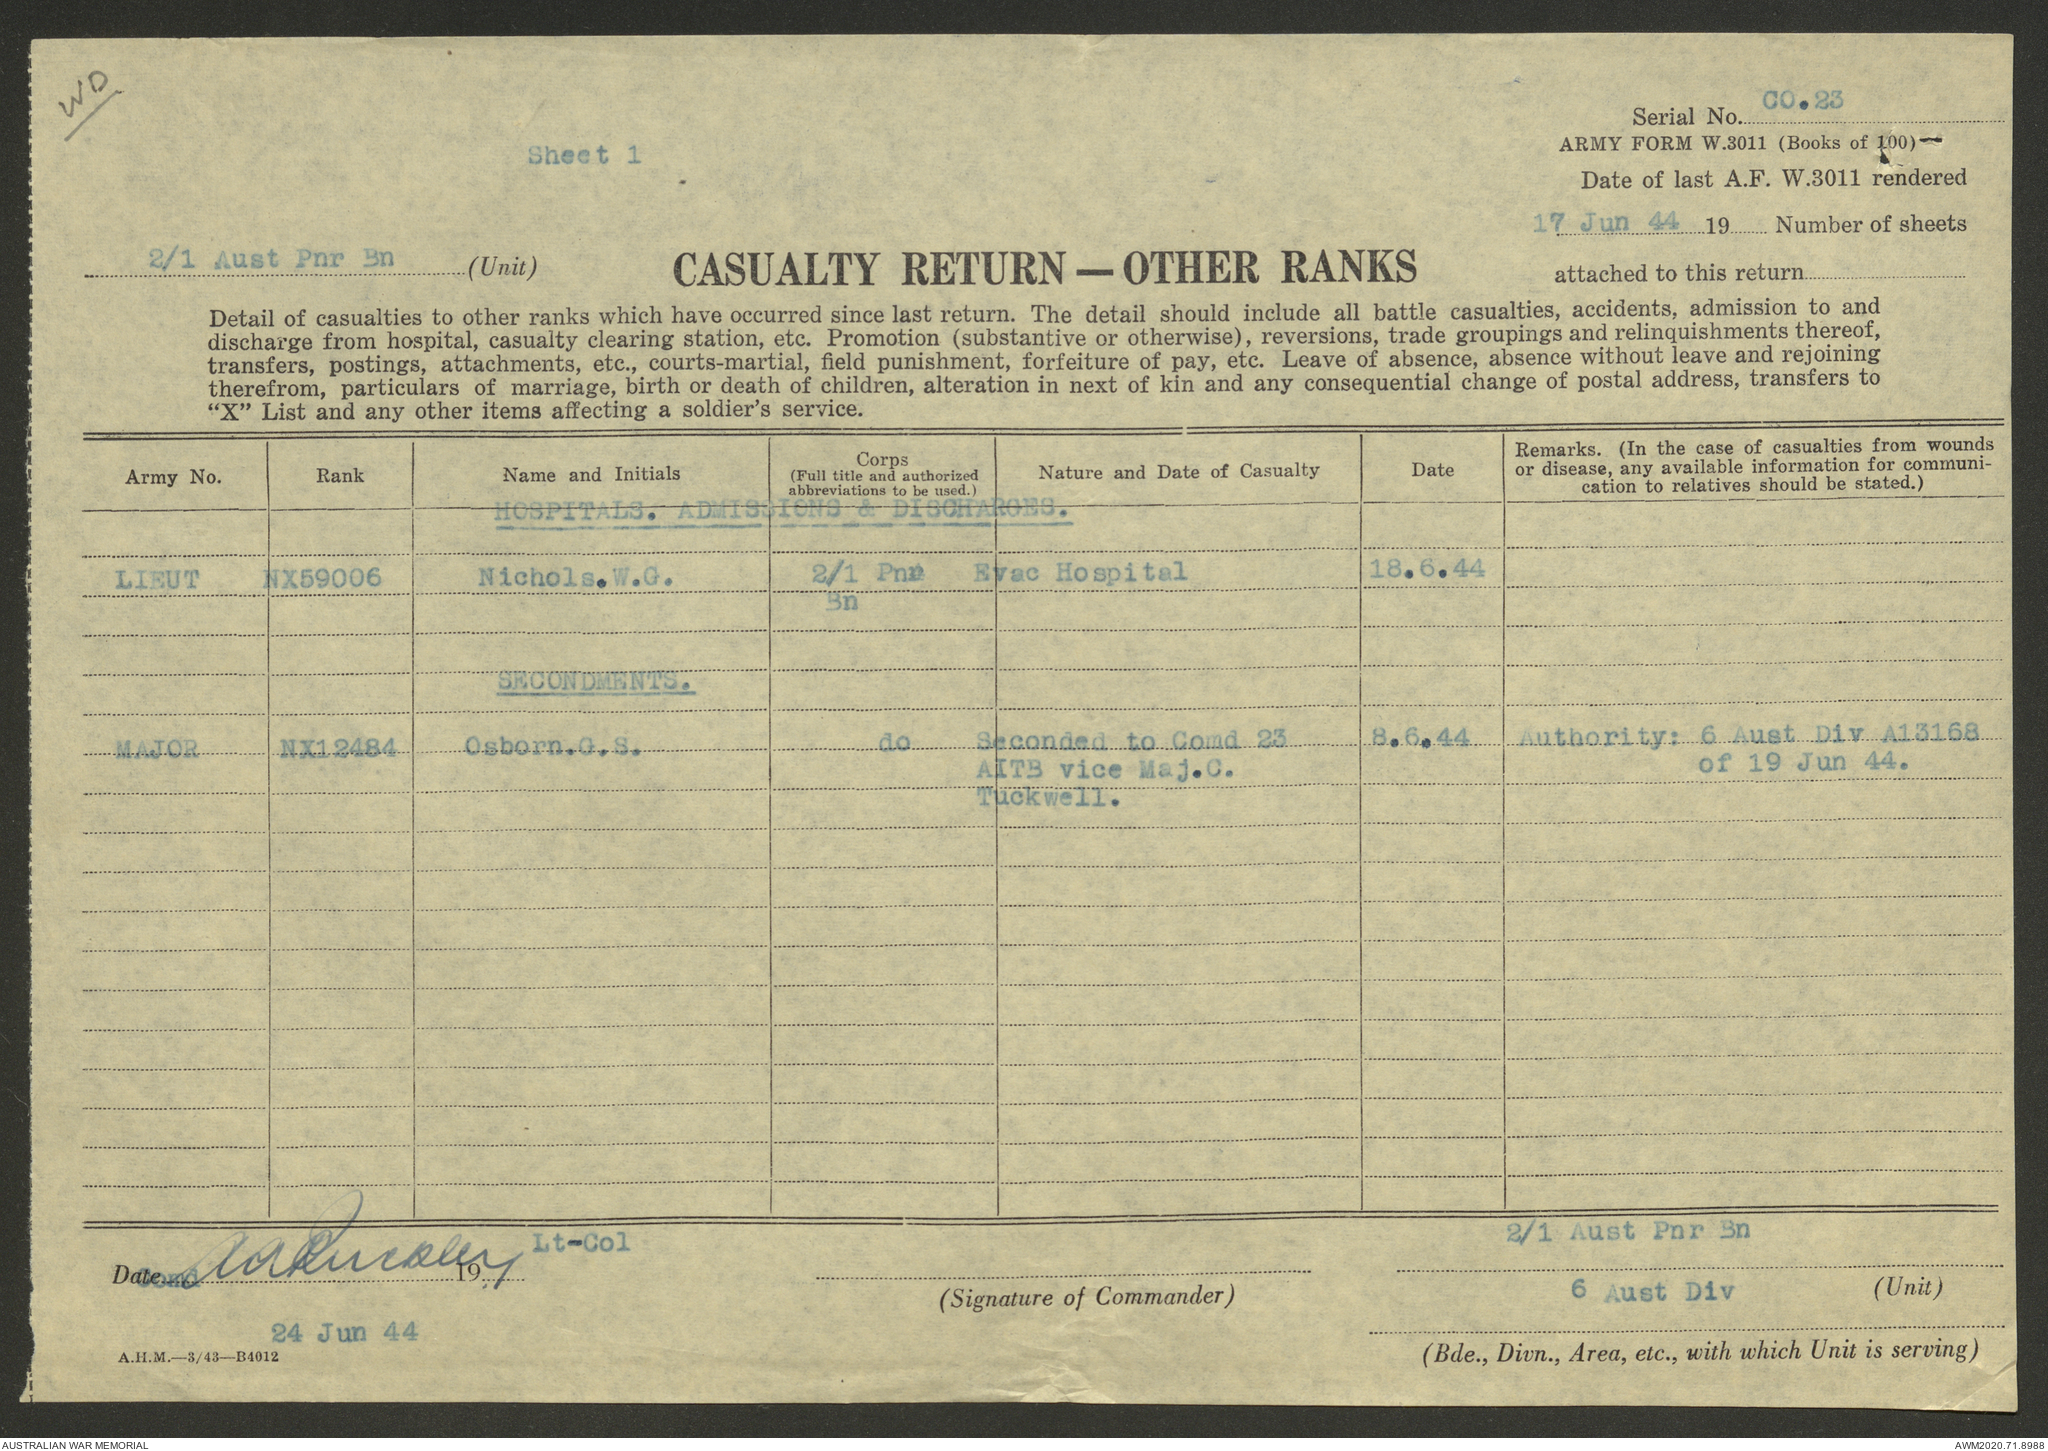 WD
CO.23
Serial No.
Sheet 1
ARMY FORM W.3011 (Books of 100)
Date of last A.F. W.3011 rendered
17 Jun 44 19 Number of sheets
2/1 Aust Pnr Bn (Unit)
CASUALTY RETURN — OTHER RANKS
attached to this return
Detail of casualties to other ranks which have occurred since last return. The detail should include all battle casualties, accidents, admission to and
discharge from hospital, casualty clearing station, etc. Promotion (substantive or otherwise), reversions, trade groupings and relinquishments thereof,
transfers, postings, attachments, etc., courts-martial, field punishment, forfeiture of pay, etc. Leave of absence, absence without leave and rejoining
therefrom, particulars of marriage, birth or death of children, alteration in next of kin and any consequential change of postal address, transfers to
“X” List and any other items affecting a soldier’s service.
Army No. Rank Name and Initials Corps (Full title and authorized abbreviations to be used.) Nature and Date of Casualty Date Remarks. (In the case of casualties from wounds
or disease, any available information for communi-
cation to relatives should be stated.)
HOSPITALS. ADMISSIONS & DISCHARGES.
LIEUT NX59006 Nichols.W.G. 2/1 Pnr Evac Hospital 18.6.44
Bn
SECONDMENTS.
MAJOR NX12484 Osborn.G.S. do Seconded to Comd 23 8.6.44 Authority: 6 Aust Div A13168
AITB vice Maj.C. of 19 Jun 44.
Tuckwell.
2/1 Aust Pnr Bn
Lt-Col
Date Comd 19
(Signature of Commander)
6 Aust Div (Unit)
24 Jun 44
(Bde., Divn., Area, etc., with which Unit is serving)
A.H.M.—3/43—B4012
AUSTRALIAN WAR MEMORIAL
AWM2020.71.8988